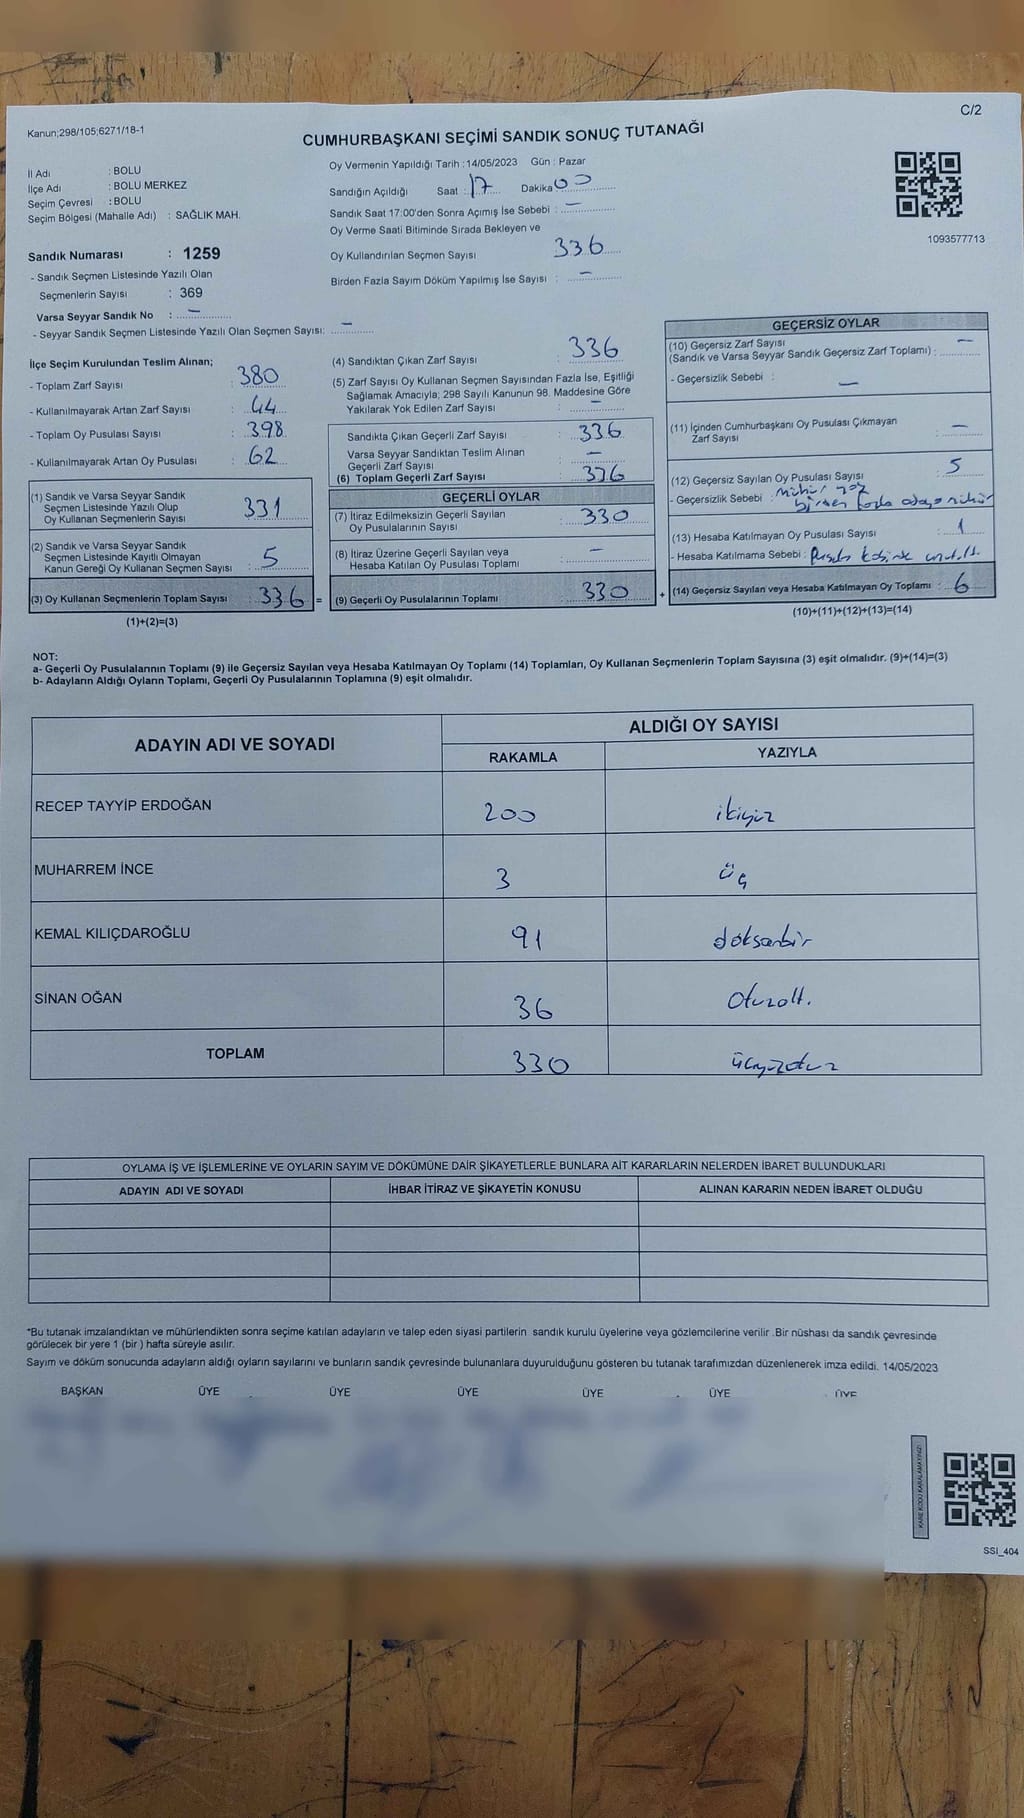 C/2
Kanun;298/105;6271/18-1
CUMHURBAŞKANI SEÇİMİ SANDIK SONUÇ TUTANAĞI
İl Adı : BOLU
İlçe Adı : BOLU MERKEZ
Seçim Çevresi : BOLU
Seçim Bölgesi (Mahalle Adı) : SAĞLIK MAH.
Oy Vermenin Yapıldığı Tarih : 14/05/2023 Gün : Pazar
Sandığın Açıldığı Saat : 17 Dakika 00
Sandık Saat 17:00'den Sonra Açımış İse Sebebi : —
Oy Verme Saati Bitiminde Sırada Bekleyen ve
Oy Kullandırılan Seçmen Sayısı 336
Birden Fazla Sayım Döküm Yapılmış İse Sayısı : —
1093577713
Sandık Numarası : 1259
- Sandık Seçmen Listesinde Yazılı Olan
Seçmenlerin Sayısı : 369
Varsa Seyyar Sandık No : —
- Seyyar Sandık Seçmen Listesinde Yazılı Olan Seçmen Sayısı: —
İlçe Seçim Kurulundan Teslim Alınan;
- Toplam Zarf Sayısı : 380
- Kullanılmayarak Artan Zarf Sayısı : 44
- Toplam Oy Pusulası Sayısı : 398
- Kullanılmayarak Artan Oy Pusulası : 62
(1) Sandık ve Varsa Seyyar Sandık
Seçmen Listesinde Yazılı Olup
Oy Kullanan Seçmenlerin Sayısı 331
(2) Sandık ve Varsa Seyyar Sandık
Seçmen Listesinde Kayıtlı Olmayan
Kanun Gereği Oy Kullanan Seçmen Sayısı : 5
(3) Oy Kullanan Seçmenlerin Toplam Sayısı : 336 =
(1)+(2)=(3)
(4) Sandıktan Çıkan Zarf Sayısı : 336
(5) Zarf Sayısı Oy Kullanan Seçmen Sayısından Fazla İse, Eşitliği
Sağlamak Amacıyla; 298 Sayılı Kanunun 98. Maddesine Göre
Yakılarak Yok Edilen Zarf Sayısı : —
Sandıkta Çıkan Geçerli Zarf Sayısı : 336
Varsa Seyyar Sandıktan Teslim Alınan
Geçerli Zarf Sayısı : —
(6) Toplam Geçerli Zarf Sayısı : 336
GEÇERLİ OYLAR
(7) İtiraz Edilmeksizin Geçerli Sayılan
Oy Pusulalarının Sayısı : 330
(8) İtiraz Üzerine Geçerli Sayılan veya
Hesaba Katılan Oy Pusulası Toplamı : —
(9) Geçerli Oy Pusulalarının Toplamı : 330 +
GEÇERSİZ OYLAR
(10) Geçersiz Zarf Sayısı
(Sandık ve Varsa Seyyar Sandık Geçersiz Zarf Toplamı) : —
- Geçersizlik Sebebi : —
(11) İçinden Cumhurbaşkanı Oy Pusulası Çıkmayan
Zarf Sayısı : —
(12) Geçersiz Sayılan Oy Pusulası Sayısı 5
- Geçersizlik Sebebi : mühür yok
birden fazla adaya mühür
(13) Hesaba Katılmayan Oy Pusulası Sayısı : 1
- Hesaba Katılmama Sebebi : Pusula
(14) Geçersiz Sayılan veya Hesaba Katılmayan Oy Toplamı : 6
(10)+(11)+(12)+(13)=(14)
NOT:
a- Geçerli Oy Pusulalarının Toplamı (9) ile Geçersiz Sayılan veya Hesaba Katılmayan Oy Toplamı (14) Toplamları, Oy Kullanan Seçmenlerin Toplam Sayısına (3) eşit olmalıdır. (9)+(14)=(3)
b- Adayların Aldığı Oyların Toplamı, Geçerli Oy Pusulalarının Toplamına (9) eşit olmalıdır.
ADAYIN ADI VE SOYADI
ALDIĞI OY SAYISI
RAKAMLA YAZIYLA
RECEP TAYYİP ERDOĞAN 200 ikiyüz
MUHARREM İNCE 3 üç
KEMAL KILIÇDAROĞLU 91 doksanbir
SİNAN OĞAN 36 Otuzalt.
TOPLAM 330 üçyüzotuz
OYLAMA İŞ VE İŞLEMLERİNE VE OYLARIN SAYIM VE DÖKÜMÜNE DAİR ŞİKAYETLERLE BUNLARA AİT KARARLARIN NELERDEN İBARET BULUNDUKLARI
ADAYIN ADI VE SOYADI İHBAR İTİRAZ VE ŞİKAYETİN KONUSU ALINAN KARARIN NEDEN İBARET OLDUĞU
*Bu tutanak imzalandıktan ve mühürlendikten sonra seçime katılan adayların ve talep eden siyasi partilerin sandık kurulu üyelerine veya gözlemcilerine verilir .Bir nüshası da sandık çevresinde
görülecek bir yere 1 (bir ) hafta süreyle asılır.
Sayım ve döküm sonucunda adayların aldığı oyların sayılarını ve bunların sandık çevresinde bulunanlara duyurulduğunu gösteren bu tutanak tarafımızdan düzenlenerek imza edildi. 14/05/2023
BAŞKAN ÜYE ÜYE ÜYE ÜYE ÜYE ÜYE
KARE KODU KARALAMAYINIZ!
SSI_404